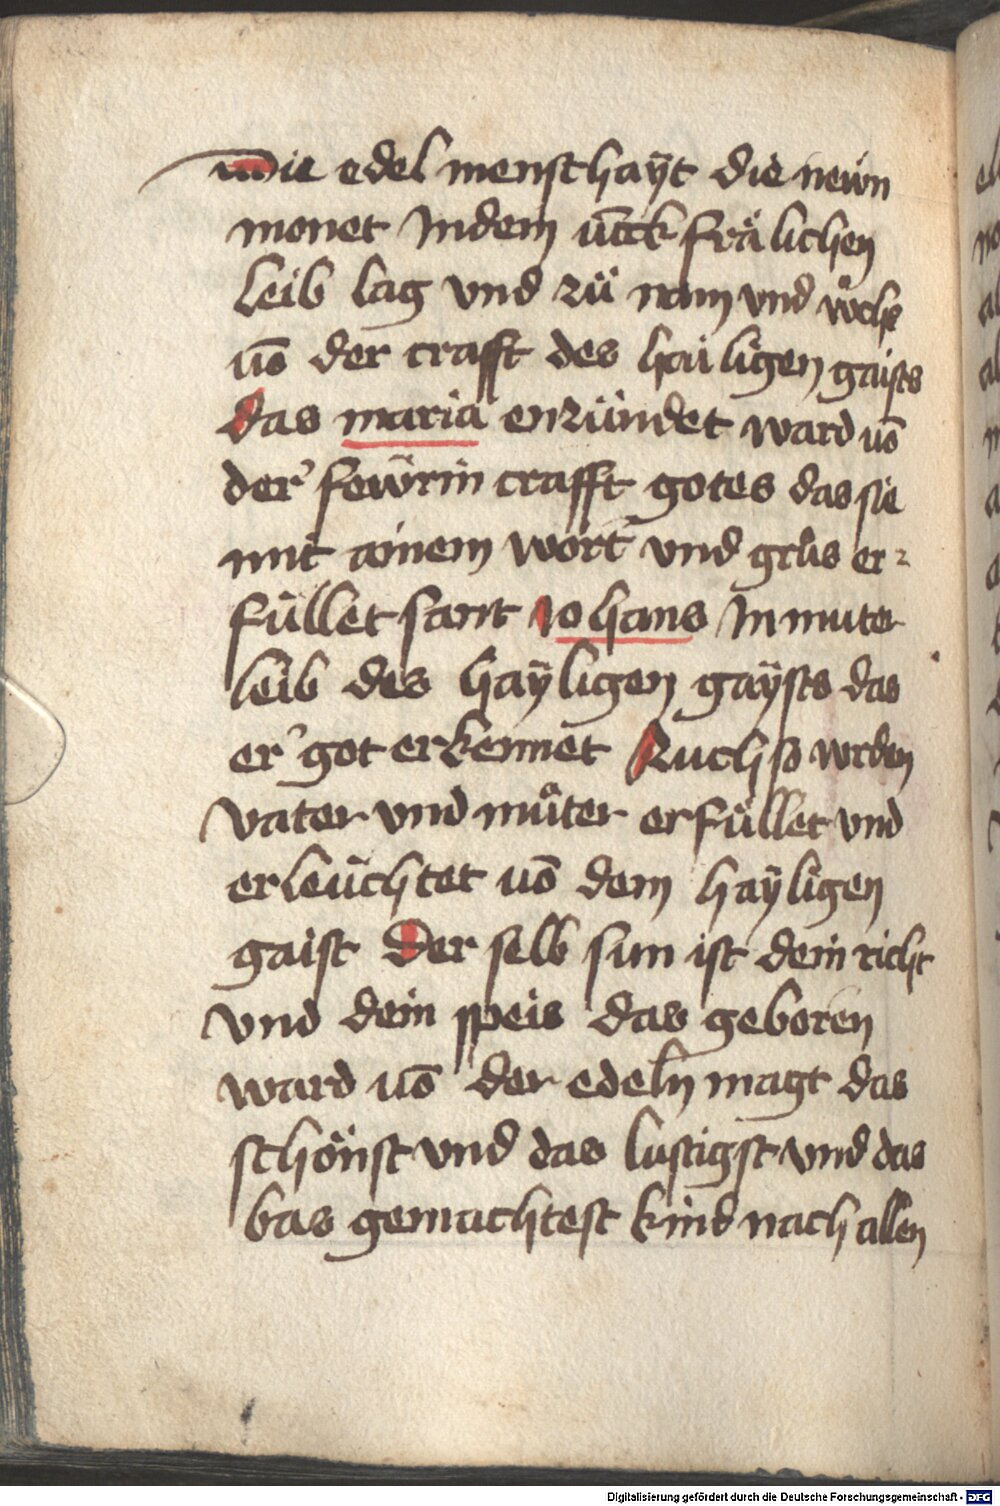 Wie edel menschaÿt die newn
monet Indem Jūckfrälichen
leib lag vnd zü nam vnd wůchs
vō der crafft des hailigen gaists
das maria enzündet ward vō
der fewrin crafft gotes das sie
mit ainem wort vnd grůs er⸗
füllet sant Johans In muter
leib des haÿligen gaÿsts das
er got erkennet Auch so wrden
vater vnd můter erfüllet vnd
erleüchtet vō dem haÿligen
gaist Der selb sun ist dein richt
vnd dein speis das geboren
ward vō der edeln magt das
schönst vnd das lustigst vnd das
bas gemachtest kind nach allen
Digitalisierung gefördert durch die Deutsche Forschungsgemeinschaft - DFG